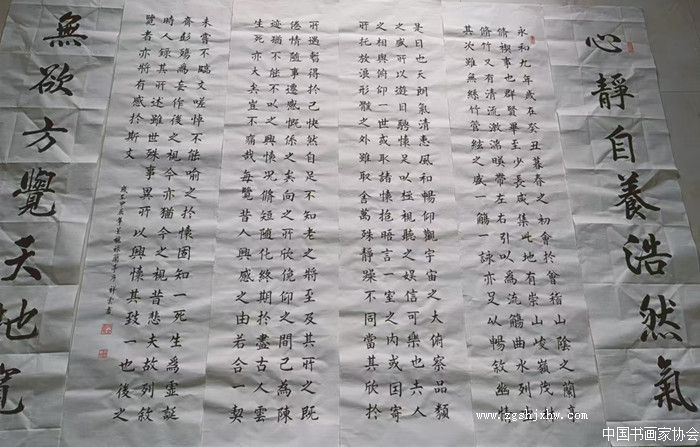 心靜自養浩然氣
永和九年歲在癸丑暮春之初會於會稽山陰之蘭亭
脩禊事也群賢畢至少長咸集此地有崇山峻嶺茂林
脩竹又有清流激湍暎帶左右引以為流觴曲水列坐
其次雖無絲竹管絃之盛一觴一詠亦足以暢敘幽情
是日也天朗氣清惠風和暢仰觀宇宙之大俯察品類
之盛所以遊目騁懷足以極視聽之娛信可樂也夫人
之相與俯仰一世或取諸懷抱晤言一室之內或因寄
所托放浪形骸之外雖取舍萬殊靜躁不同當其欣於
所遇暫得於己快然自足不知老之將至及其所之既
倦情隨事遷感慨係之矣向之所欣俛仰之間已為陳
迹猶不能不以之興懷況脩短隨化終期於盡古人雲
生死亦大矣豈不痛哉每覽昔人興感之由若合一契
未嘗不臨文嗟悼不能喻之於懷固知一死生為虛誕
齊彭殤為妄作後之視今亦猶今之視昔悲夫故列敘
時人錄其所述雖世殊事異所以興懷其致一也後之
覽者亦將有感於斯文
無欲方覺天地寬
www.zgshjxhw.com
中国书画家协会